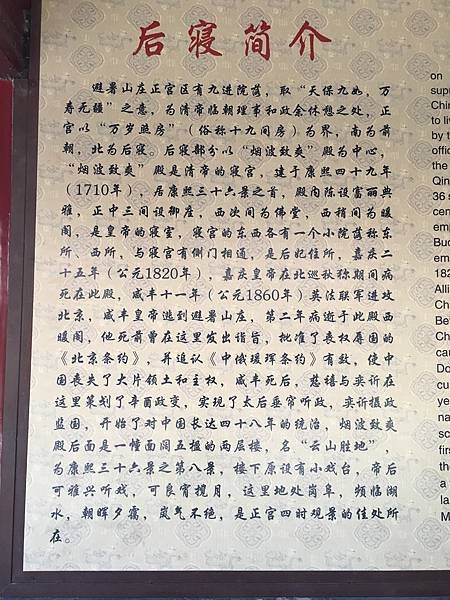 后寝简介
避暑山庄正宫区有九进院落，取“天保九如，万
寿无疆”之意，为清帝临朝理事和政余休憩之处，正
宫以“万岁照房”（俗称十九间房）为界，南为前
朝，北为后寝。后寝部分以“烟波致爽”殿为中心，
“烟波致爽”殿是清帝的寝宫，建于康熙四十九年
（1710年），居康熙三十六景之首，殿内陈设富丽典
雅，正中三间设御座，西次间为佛堂，西稍间为暖
阁，是皇帝的寝室，寝宫的东西各有一个小院落称东
所、西所，与寝宫有侧门相通，是后妃住所，嘉庆二
十五年（公元1820年），嘉庆皇帝在北巡秋狝期间病
死在此殿，咸丰十一年（公元1860年）英法联军进攻
北京，咸丰皇帝逃到避暑山庄，第二年病逝于此殿西
暖阁，他死前曾在这里发出诣旨，批准了丧权辱国的
《北京条约》，并追认《中俄瑷珲条约》有效，使中
国丧失了大片领土和主权，咸丰死后，慈禧与奕訢在
这里策划了辛酉政变，实现了太后垂帘听政，奕訢摄政
监国，开始了对中国长达四十八年的统治，烟波致爽
殿后面是一幢面阔五楹的两层楼，名“云山胜地”，
为康熙三十六景之第八景，楼下原设有小戏台，帝后
可雅兴听戏，可良宵揽月，这里地处岗阜，频临湖
水，朝晖夕霭，岚气不绝，是正宫四时观景的佳处所
在。
on
Chin
to li
by t
offic
the
Qin
36 s
cen
emp
Buc
em
182
Alli
Ch
Be
Ch
car
Do
cu
ye
na
sc
firs
the
a
la
M